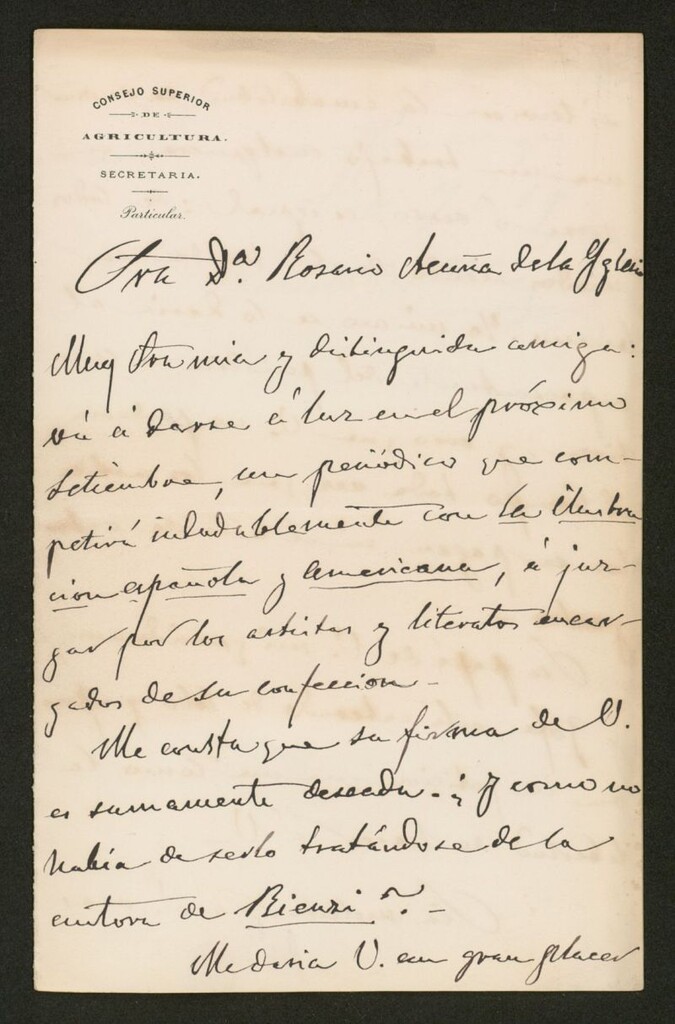 CONSEJO SUPERIOR
DE
AGRICULTURA.
SECRETARIA.
Particular.
Sra Dª. Rosario Acuña de la Yglesia
Muy Sra mia y distinguida amiga:
vá á darse á luz en el próximo
setiembre, un periódico que com-
petirá indudablemente con la ilustra
cion española y americana, á juz-
gar por los artistas y literatos encar-
gados de su confeccion-
Me consta que su firma de V.
es sumamente deseada. ¿Y como no
habia de serlo tratándose de la
autora de Rienzi?-
Me daria V. un gran placer